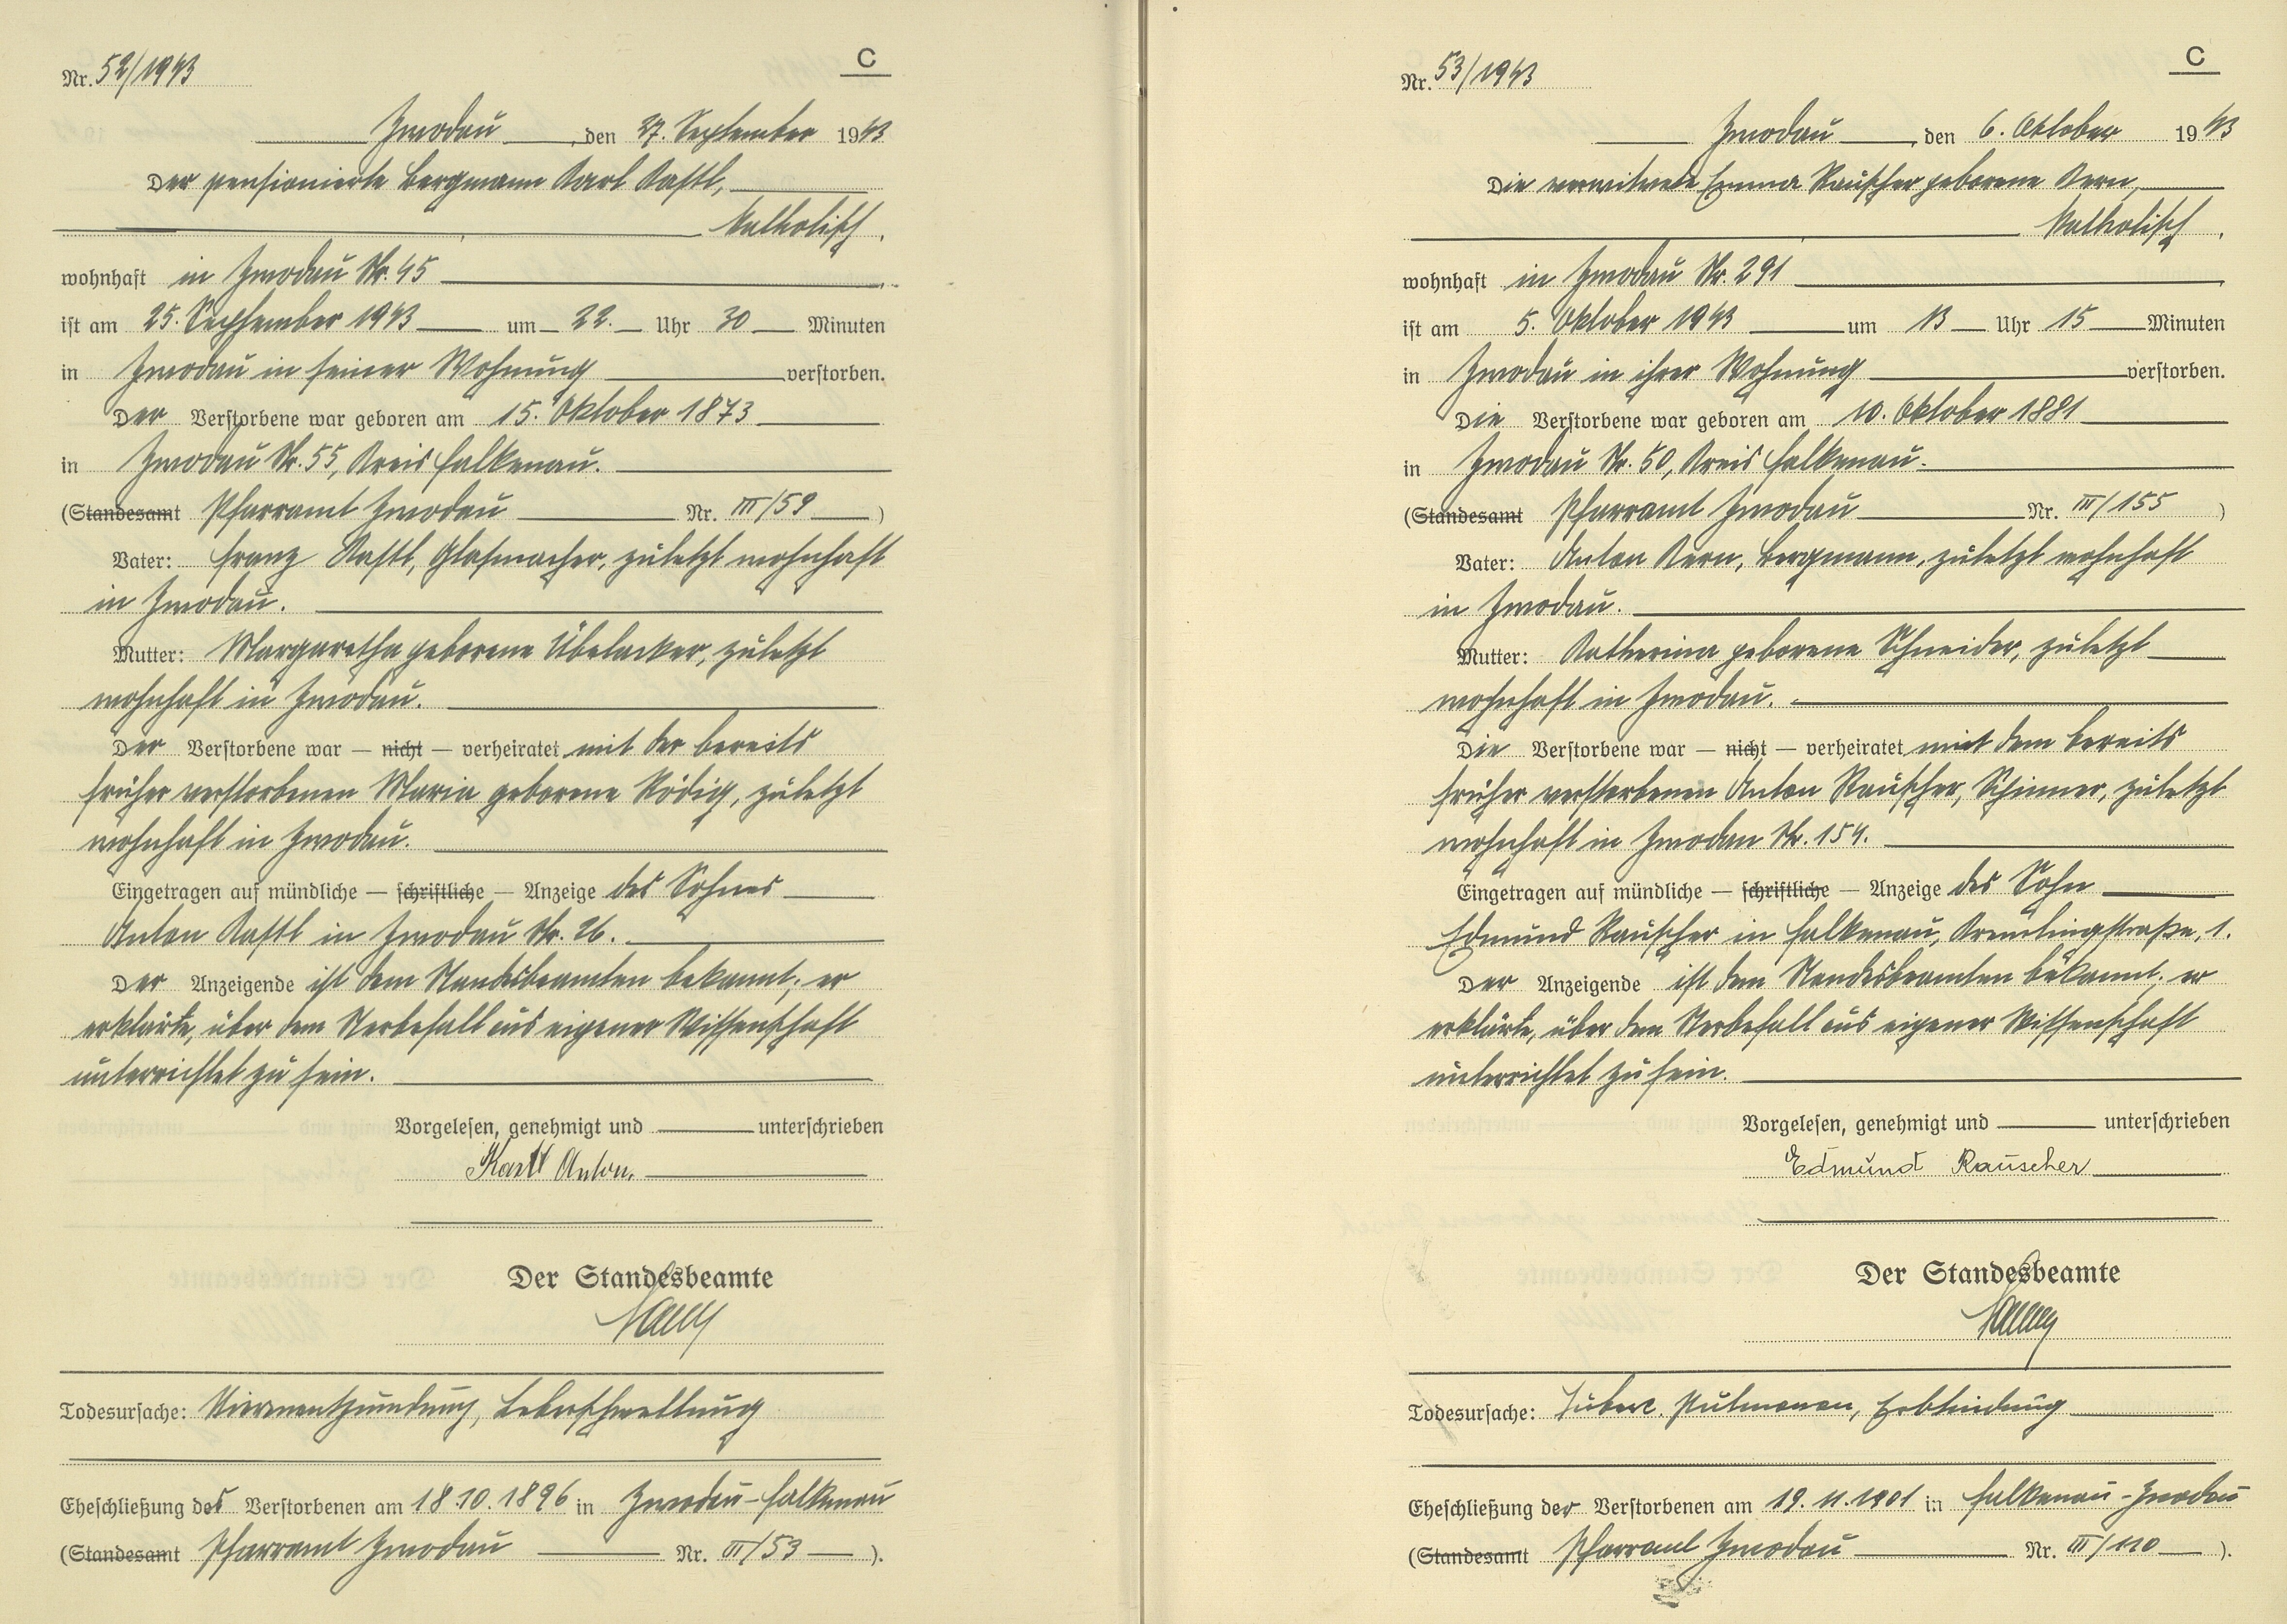 C
Nr. 52/1943
Zwodau, den 27. September 1943
Der pensionierte Bergmann Karl Kastl,
katholisch,
wohnhaft in Zwodau Nr. 45
ist am 25. September 1943 um 22 Uhr 30 Minuten
in Zwodau in seiner Wohnung verstorben.
Der Verstorbene war geboren am 15. Oktober 1873
in Zwodau Nr. 55, Kreis Falkenau.
(Standesamt Pfarramt Zwodau Nr. III/59)
Vater: Franz Kastl, Glasmacher, zuletzt wohnhaft
in Zwodau.
Mutter: Margaretha geborene Übelacker, zuletzt
wohnhaft in Zwodau.
Der Verstorbene war — nicht — verheiratet mit der bereits
früher verstorbenen Maria geborene Rödig, zuletzt
wohnhaft in Zwodau.
Eingetragen auf mündliche — schriftliche — Anzeige des Sohnes
Anton Kastl in Zwodau Nr. 26.
Der Anzeigende ist dem Standesbeamten bekannt; er
erklärte, über den Sterbefall aus eigener Wissenschaft
unterrichtet zu sein.
Vorgelesen, genehmigt und unterschrieben
Kastl Anton.
Der Standesbeamte
Todesursache: Nierenentzündung, Leberschwellung
Eheschließung des Verstorbenen am 18.10.1896 in Zwodau-Falkenau
(Standesamt Pfarramt Zwodau Nr. III/53).
C
Nr. 53/1943
Zwodau, den 6. Oktober 1943
Die verwitwete Emma Rauscher geborene Kern,
katholisch,
wohnhaft in Zwodau Nr. 291
ist am 5. Oktober 1943 um 13 Uhr 15 Minuten
in Zwodau in ihrer Wohnung verstorben.
Die Verstorbene war geboren am 10. Oktober 1881
in Zwodau Nr. 50, Kreis Falkenau.
(Standesamt Pfarramt Zwodau Nr. III/155)
Vater: Anton Kern, Bergmann, zuletzt wohnhaft
in Zwodau.
Mutter: Katherina geborene Schneider, zuletzt
wohnhaft in Zwodau.
Die Verstorbene war — nicht — verheiratet mit dem bereits
früher verstorbenen Anton Rauscher, zuletzt
wohnhaft in Zwodau Nr. 154.
Eingetragen auf mündliche — schriftliche — Anzeige des Sohn
Edmund Rauscher in Falkenau, 1.
Der Anzeigende ist dem Standesbeamten bekannt; er
erklärte, über den Sterbefall aus eigener Wissenschaft
unterrichtet zu sein.
Vorgelesen, genehmigt und unterschrieben
Edmund Rauscher
Der Standesbeamte
Todesursache: Tuberc. Pulmonan, Erblindung
Eheschließung der Verstorbenen am 19.11.1901 in Falkenau-Zwodau
(Standesamt Pfarramt Zwodau Nr. III/110).